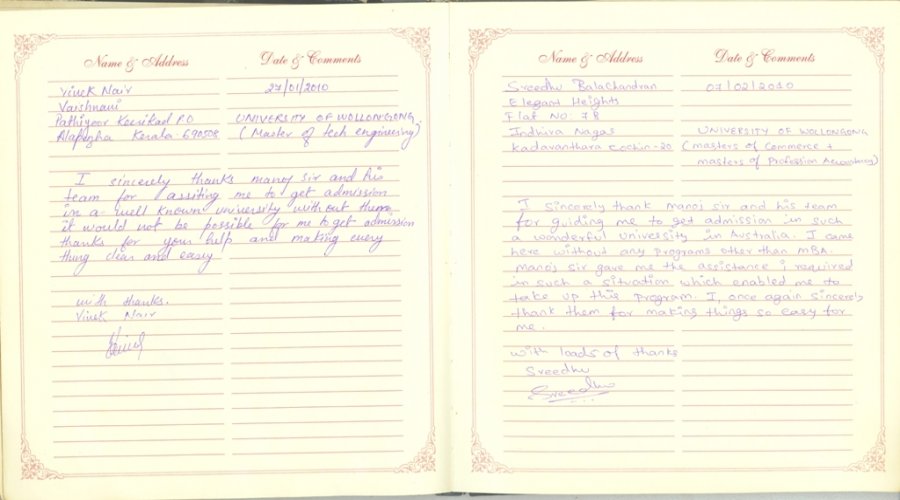 Name & Address
Date & Comments
Vivek Nair
27/01/2010
Vaishnavi
Pathiyoor Keerikad P.O
UNIVERSITY OF WOLLONGONG.
Alapuzha Kerala 690508
(Master of tech engineering)
I sincerely thanks manoj sir and his
team for assiting me to get admission
in a well known university without them
it would not be possible for me to get admission
thanks for your help and making every
thing clear and easy
with thanks.
Vivek Nair
Name & Address
Date & Comments
Sreedhu BalaChandran
07/02/2010
Elegant Heights
Flat NO: 7B
Indhira Nagar
UNIVERSITY OF WOLLONGONG
Kadavanthara cochin-20
(masters of Commerce +
masters of Profession Accountancy)
I sincerely thank manoj sir and his team
for guiding me to get admission in such
a wonderful university in Australia. I came
here without any programs other than MBA.
manoj sir gave me the assistance i required
in such a situation which enabled me to
take up this program. I, once again sincerely
thank them for making things so easy for
me.
with loads of thanks
Sreedhu
Sreedhu